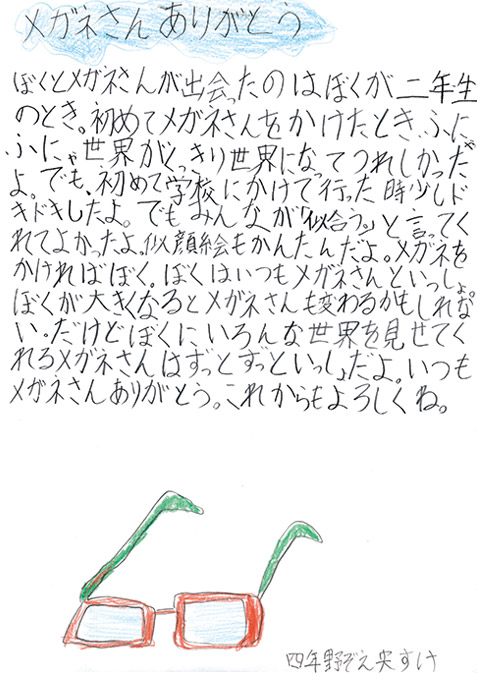 メガネさんありがとう
ぼくとメガネさんが出会ったのはぼくが二年生
のとき。初めてメガネさんをかけたとき、ふにゃ
ふにゃ世界がくっきり世界になってうれしかった
よ。でも、初めて学校にかけて行った時少しド
キドキしたよ。でもみんなが「似合う。」と言ってく
れてよかったよ。似顔絵もかんたんだよ。メガネを
かければぼく。ぼくはいつもメガネさんといっしょ。
ぼくが大きくなるとメガネさんも変わるかもしれな
い。だけどぼくにいろんな世界を見せてく
れるメガネさんはずっとずっといっしょだよ。いつも
メガネさんありがとう。これからもよろしくね。
四年野ぞえ央すけ